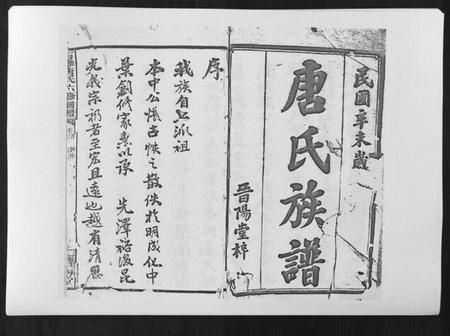 民國辛未歲
唐氏族譜
晉陽堂梓
序
我族自上派祖
本中公懼古帙之散佚於明成化中
葉創修家乘以承 先澤裕後昆
光義宗祊者至宏且遠也越有清歷
唐氏六修族譜